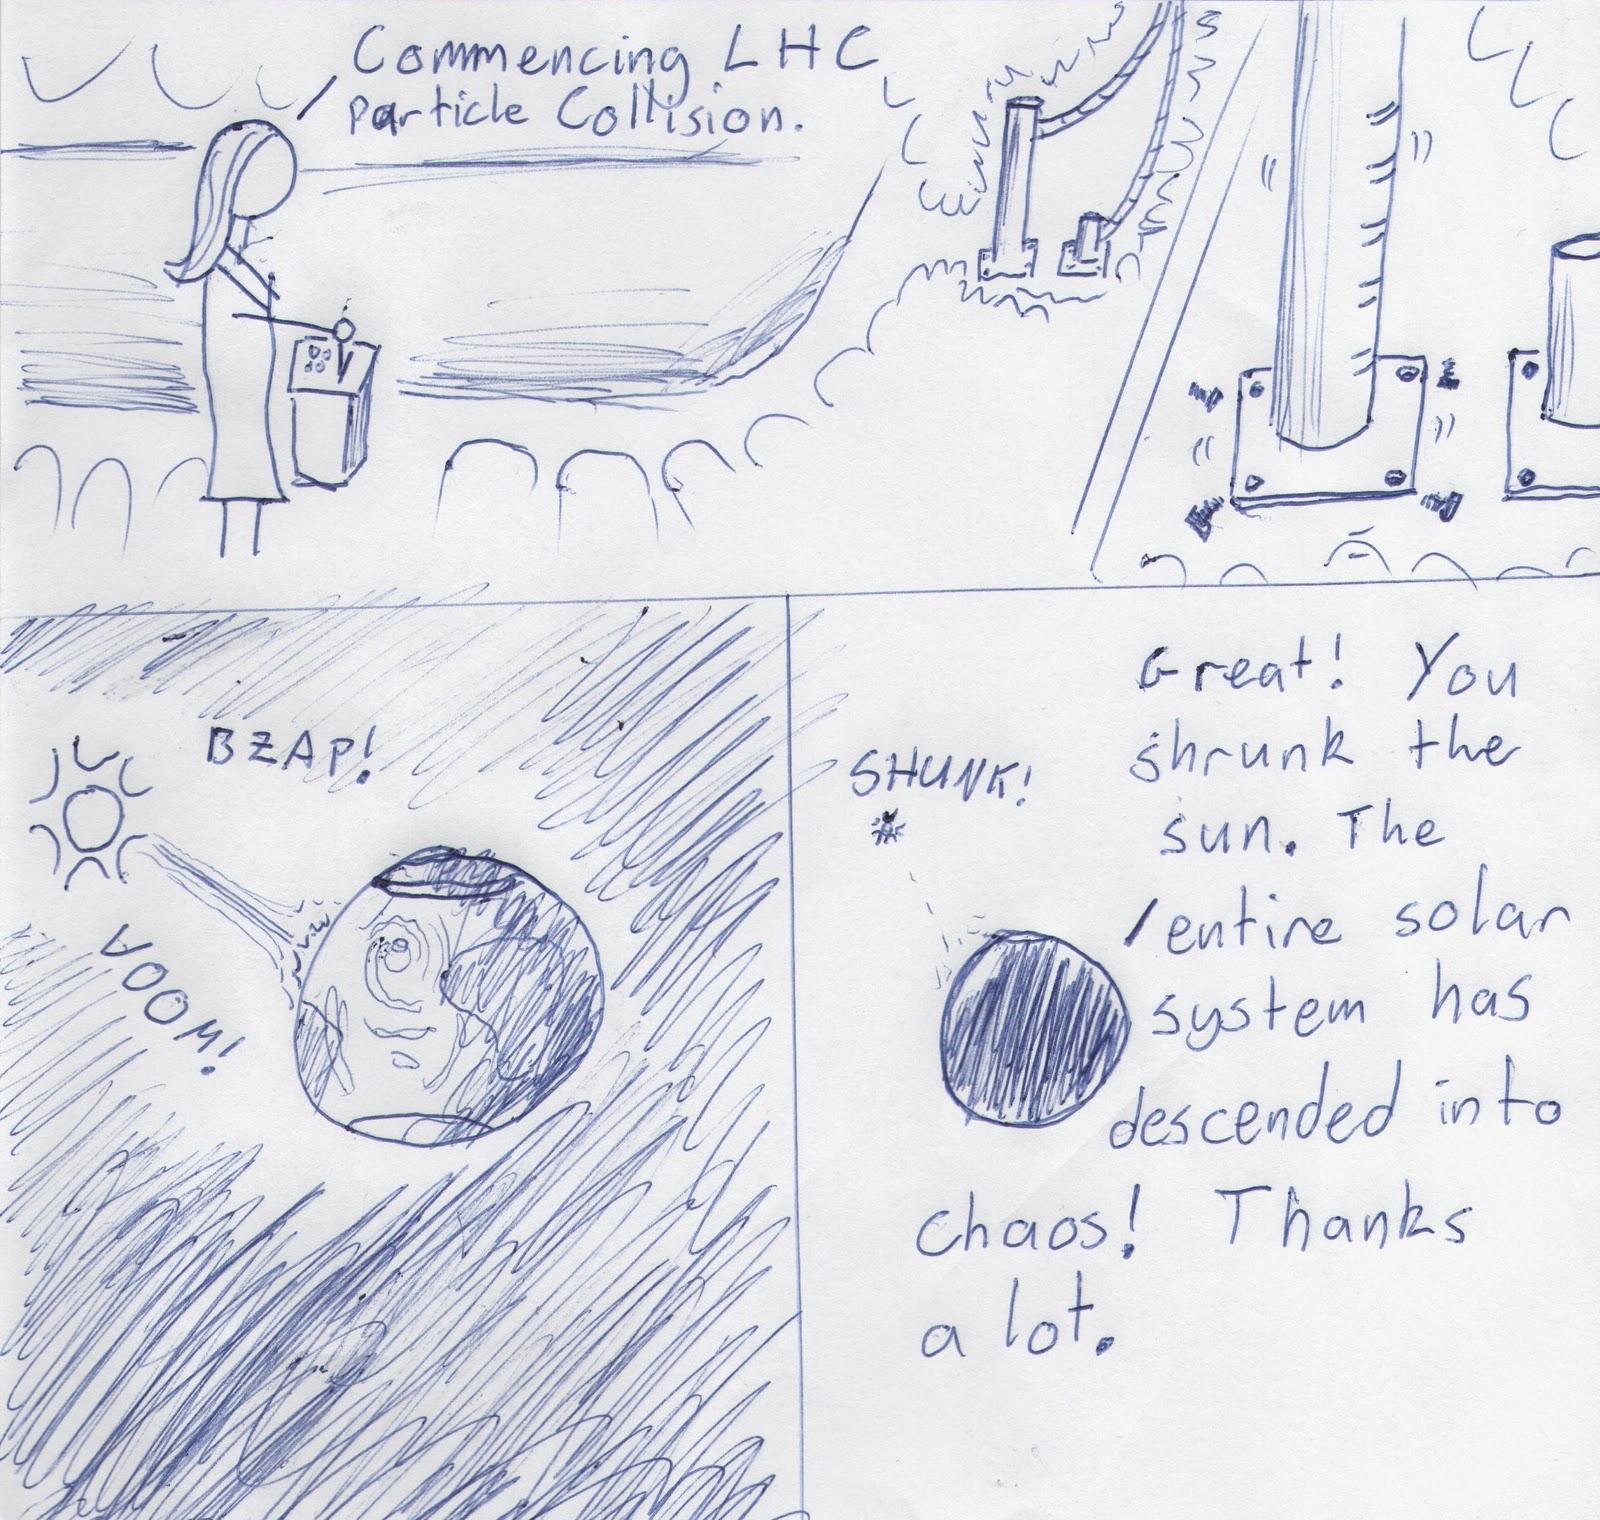 Commencing LHC
particle Collision.
BZAP!
VOOM!
SHUNK!
Great! You
shrunk the
sun. The
entire solar
system has
descended into
chaos! Thanks
a lot.